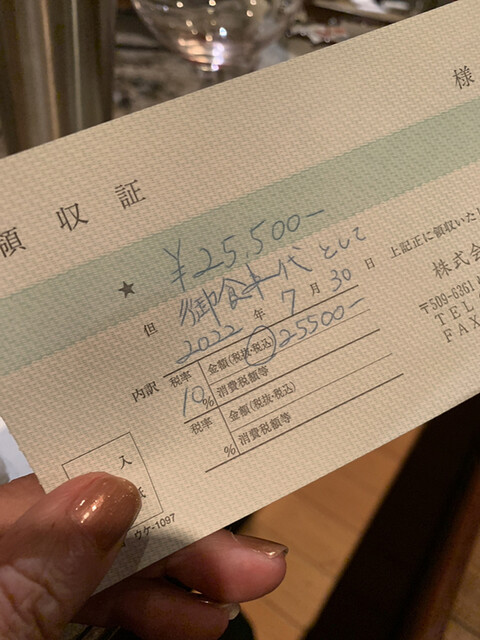 領収証
様
★ ¥25,500-
但 御食事代 として
2022年 7月 30日 上記正に領収いた
株式会
〒509-6361
TEL
FAX
内訳 税率 10% 金額(税抜・税込) 25500-
消費税額等
税率 % 金額(税抜・税込)
消費税額等
入
ウケ-1097